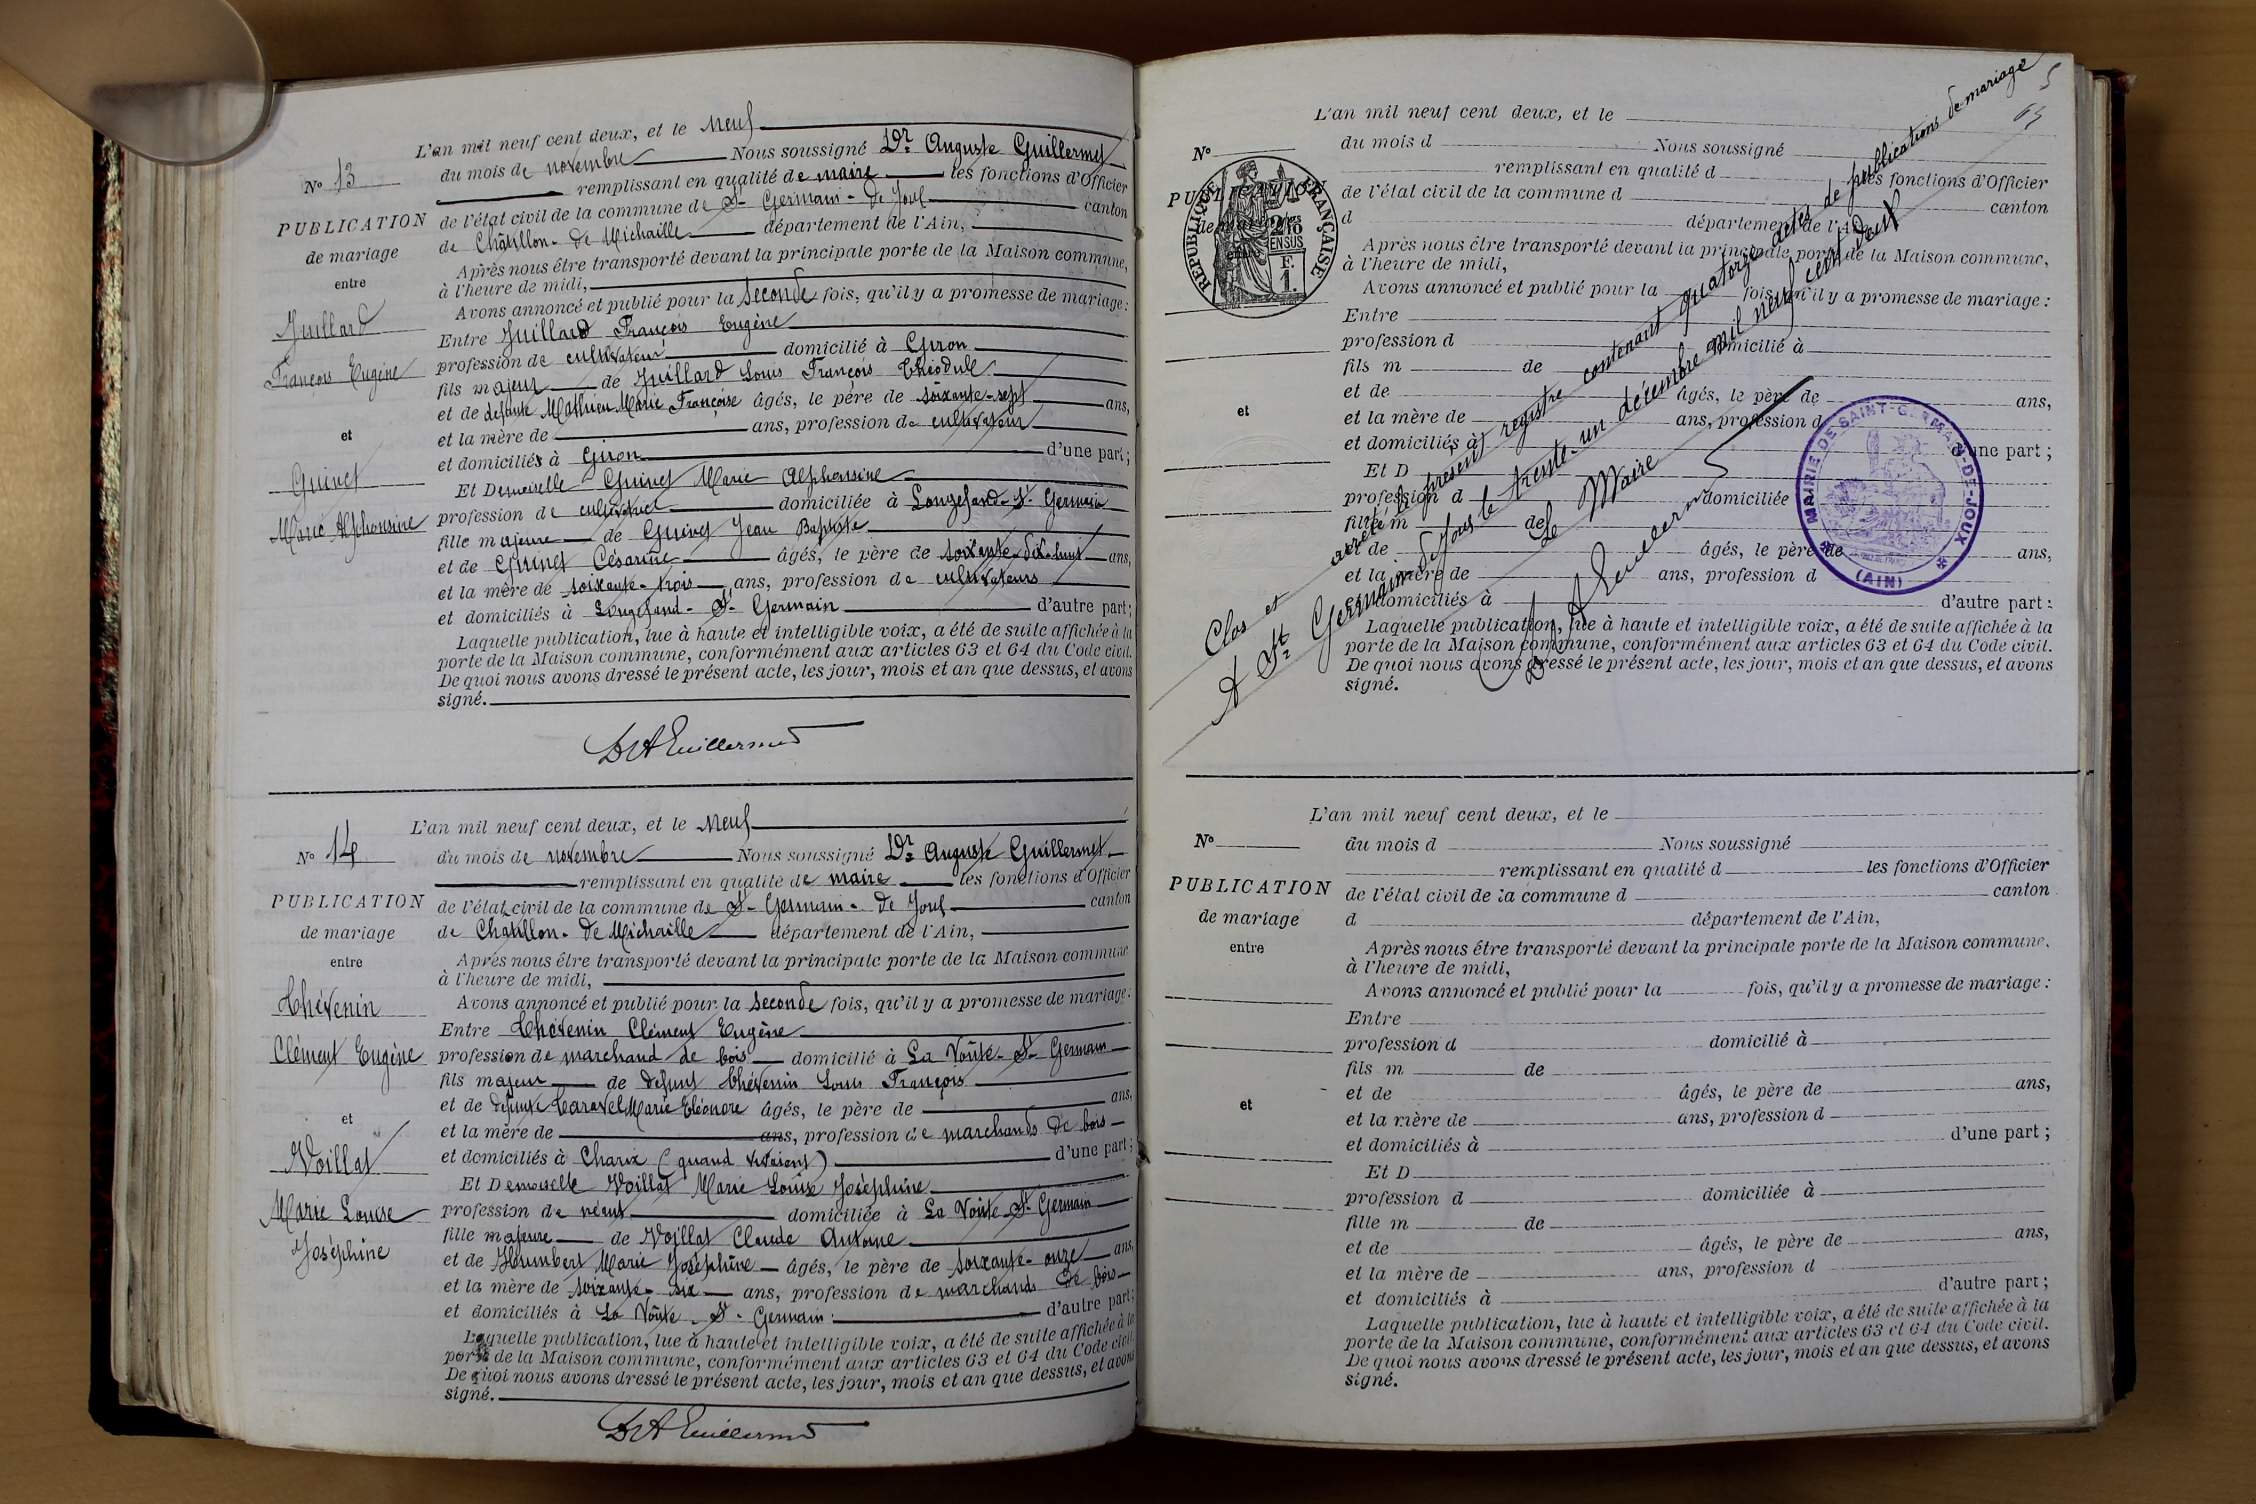 L'an mil neuf cent deux, et le Neuf
N° 13
du mois de novembre Nous soussigné Dr Auguste Guillermet
remplissant en qualité de maire les fonctions d'Officier
PUBLICATION
de mariage
entre
de l'état civil de la commune de St- Germain- de Joux canton
de Châtillon- de Michaille département de l'Ain,
Après nous être transporté devant la principale porte de la Maison commune,
à l'heure de midi,
Avons annoncé et publié pour la seconde fois, qu'il y a promesse de mariage:
Juillard
François Eugène
et
Guinet
Marie Alphonsine
Entre Juillard François Eugène
profession de cultivateur domicilié à Giron
fils majeur de Juillard Louis François Théodule
et de defunte Mathieu Marie Françoise âgés, le père de soixante-sept ans,
et la mère de ans, profession de cultivateur
et domiciliés à Giron d'une part;
Et Demoiselle Guinet Marie Alphonsine
profession de cultivatrice domiciliée à Longefand-St Germain
fille majeure de Guinet Jean Baptiste
et de Guinet Césarine âgés, le père de soixante-dix-huit ans,
et la mère de soixante-trois ans, profession de cultivateurs
et domiciliés à Longefand- St- Germain d'autre part;
Laquelle publication, lue à haute et intelligible voix, a été de suite affichée à la
porte de la Maison commune, conformément aux articles 63 et 64 du Code civil.
De quoi nous avons dressé le présent acte, les jour, mois et an que dessus, et avons
signé.
Dr A Guillermet
L'an mil neuf cent deux, et le Neuf
N° 14
du mois de novembre Nous soussigné Dr Auguste Guillermet
remplissant en qualité de maire les fonctions d'Officier
PUBLICATION
de mariage
entre
de l'état civil de la commune de St- Germain- de Joux canton
de Châtillon- de Michaille département de l'Ain,
Après nous être transporté devant la principale porte de la Maison commune
à l'heure de midi,
Avons annoncé et publié pour la seconde fois, qu'il y a promesse de mariage:
Thévenin
Clément Eugène
et
Voillat
Marie Louise
Joséphine
Entre Thévenin Clément Eugène
profession de marchand de bois domicilié à La Voûte- St- Germain
fils majeur de defunt Thévenin Louis François
et de defunte Caravel Marie Eléonore âgés, le père de ans,
et la mère de ans, profession de marchands de bois
et domiciliés à Charix (quand vivaient) d'une part;
Et Demoiselle Voillat Marie Louise Joséphine
profession de néant domiciliée à La Voûte-St- Germain
fille majeure de Voillat Claude Antoine
et de Humbert Marie Joséphine âgés, le père de soixante-onze ans,
et la mère de soixante-six ans, profession de marchands de bois
et domiciliés à La Voûte- St- Germain: d'autre part;
Laquelle publication, lue à haute et intelligible voix, a été de suite affichée à la
porte de la Maison commune, conformément aux articles 63 et 64 du Code civil.
De quoi nous avons dressé le présent acte, les jour, mois et an que dessus, et avons
signé.
Dr A Guillermet
5
63
L'an mil neuf cent deux, et le
N°
du mois d Nous soussigné
remplissant en qualité d les fonctions d'Officier
PUBLICATION
de mariage
entre
REPUBLIQUE FRANÇAISE
2/10
EN SUS
F.
1.
de l'état civil de la commune d canton
d département de l'Ain,
Après nous être transporté devant la principale porte de la Maison commune,
à l'heure de midi,
Avons annoncé et publié pour la fois, qu'il y a promesse de mariage:
Entre
profession d domicilié à
fils m de
et de âgés, le père de ans,
et
et la mère de ans, profession d
et domiciliés à d'une part;
Et D
profession d domiciliée
fille m de
et de âgés, le père de ans,
et la mère de ans, profession d
et domiciliés à d'autre part:
Laquelle publication, lue à haute et intelligible voix, a été de suite affichée à la
porte de la Maison commune, conformément aux articles 63 et 64 du Code civil.
De quoi nous avons dressé le présent acte, les jour, mois et an que dessus, et avons
signé.
Clos et arrêté le présent registre contenant quatorze actes de publications de mariage
A St Germain-de-Joux le trente-un décembre mil neuf cent deux
Le Maire
Dr A Guillermet
MAIRIE DE SAINT-GERMAIN-DE-JOUX
(AIN)
L'an mil neuf cent deux, et le
N°
du mois d Nous soussigné
remplissant en qualité d les fonctions d'Officier
PUBLICATION
de mariage
entre
de l'état civil de la commune d canton
d département de l'Ain,
Après nous être transporté devant la principale porte de la Maison commune.
à l'heure de midi,
Avons annoncé et publié pour la fois, qu'il y a promesse de mariage:
Entre
profession d domicilié à
fils m de
et de âgés, le père de ans,
et
et la mère de ans, profession d
et domiciliés à d'une part;
Et D
profession d domiciliée à
fille m de
et de âgés, le père de ans,
et la mère de ans, profession d
et domiciliés à d'autre part;
Laquelle publication, lue à haute et intelligible voix, a été de suite affichée à la
porte de la Maison commune, conformément aux articles 63 et 64 du Code civil.
De quoi nous avons dressé le présent acte, les jour, mois et an que dessus, et avons
signé.